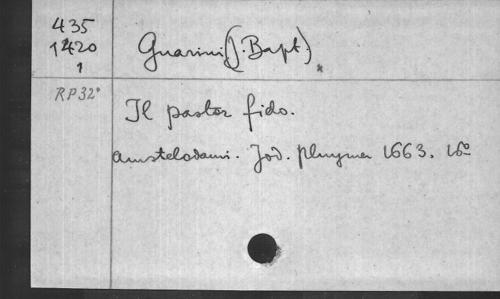 435
1420
1
Guarini (J. Bapt.) *
RP32°
Il pastor fido.
Amstelodami. Jod. Pluymer 1663. 16°